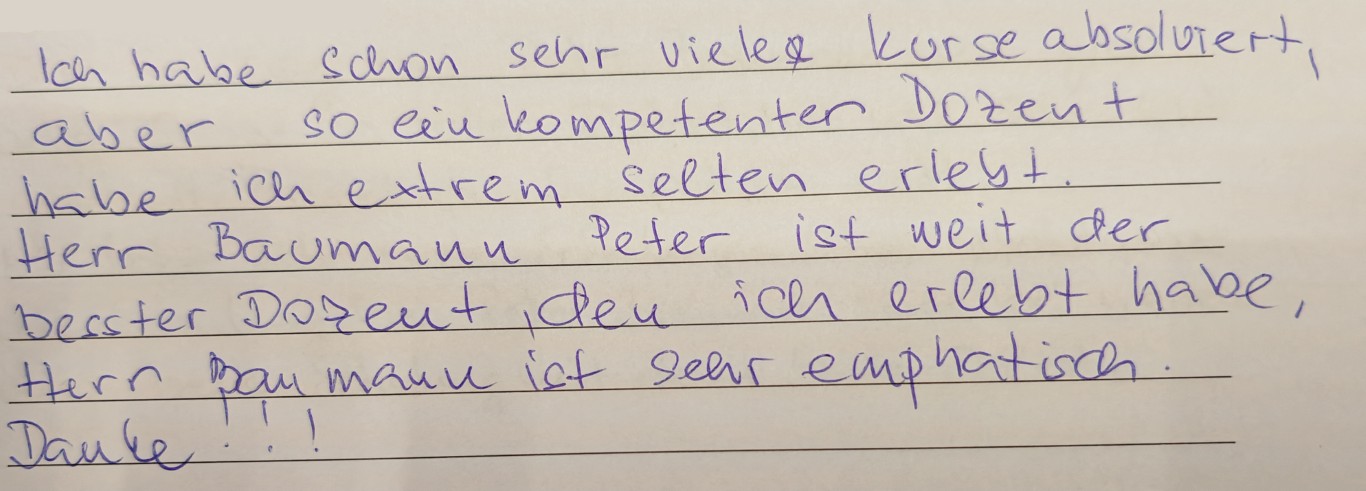 Ich habe schon sehr viele kurse absolviert,
aber so ein kompetenter Dozent
habe ich extrem selten erlebt.
Herr Baumann Peter ist weit der
besster Dozent, den ich erlebt habe,
Herr Baumann ist sehr emphatisch.
Danke!!!